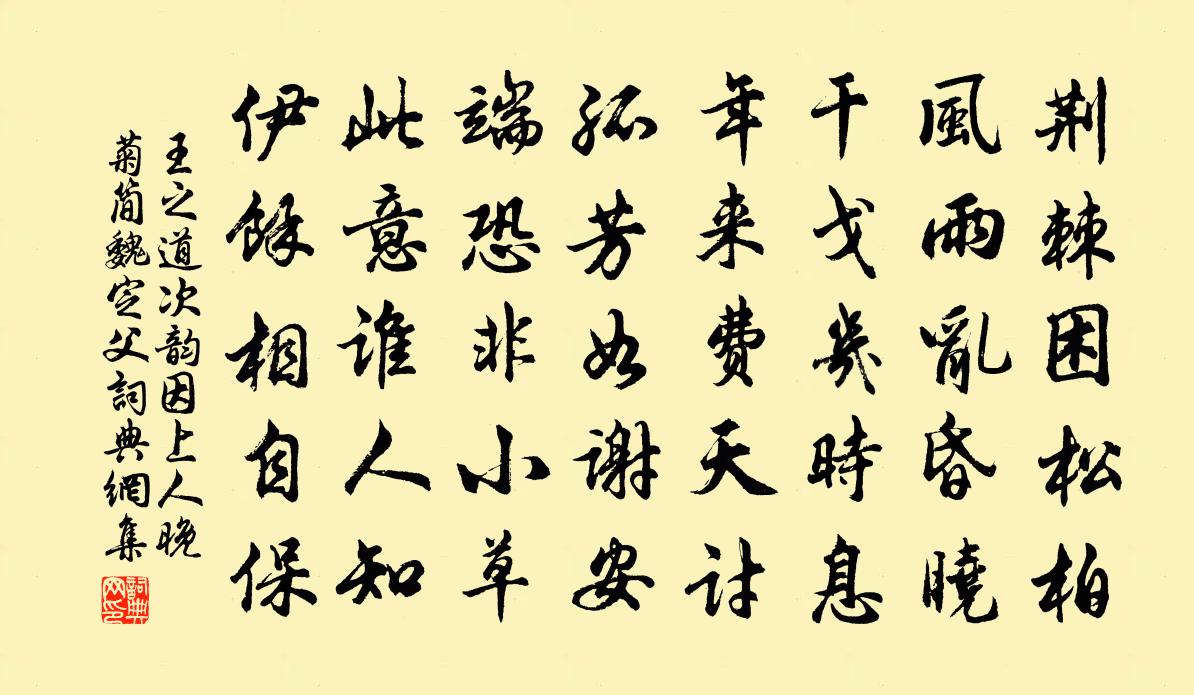 荆棘困松柏
風雨亂昏曉
干戈幾時息
年来費天討
孤芳如謝安
端恐非小草
此意誰人知
伊餘相自保
王之道次韵因上人晚
菊簡魏定父詞典網集
詞典网印